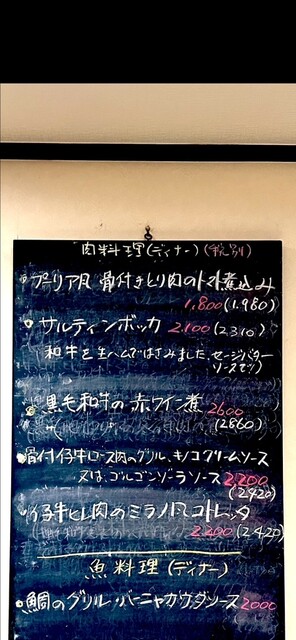 肉料理(ディナー)(税別)
プーリア風 骨付きとり肉のトマト煮込み
1,800(1,980)
サルティンボッカ 2,100(2310)
(和牛を生ハムではさみました、セージバター
ソースです)
黒毛和牛の赤ワイン煮 2600
(2860)
骨付仔牛ロース肉のグリル、キノコクリームソース
又は、ゴルゴンゾーラソース 2,200
(2420)
仔牛ヒレ肉のミラノ風コトレッタ
2,200(2420)
魚料理(ディナー)
鯛のグリル・バーニャカウダソース 2000